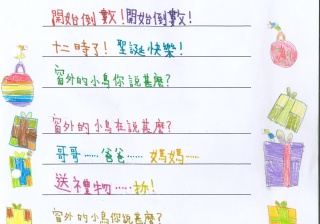 開始倒數!開始倒數!
十二時了!聖誕快樂!
窗外的小鳥你說甚麼?
窗外的小鳥在說甚麼?
哥哥……爸爸……媽媽……
送禮物……拆!
窗外的小鳥你說甚麼?